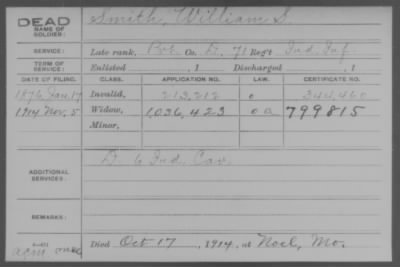 DEAD Smith, William S.
NAME OF
SOLDIER:
SERVICE: Late rank, Pvt. Co. D, 71 Reg't Ind. Inf.
TERM OF
SERVICE: Enlisted , 1 Discharged , 1
DATE OF FILING. CLASS. APPLICATION NO. LAW. CERTIFICATE NO.
1876 Jan. 17 Invalid, 213,212 o 344,460
1914 Nov. 5 Widow, 1,036,423 o a 799815
Minor,
D. 6 Ind. Cav.
ADDITIONAL
SERVICES:
REMARKS:
Died Oct 17, 1914, at Noel, Mo.